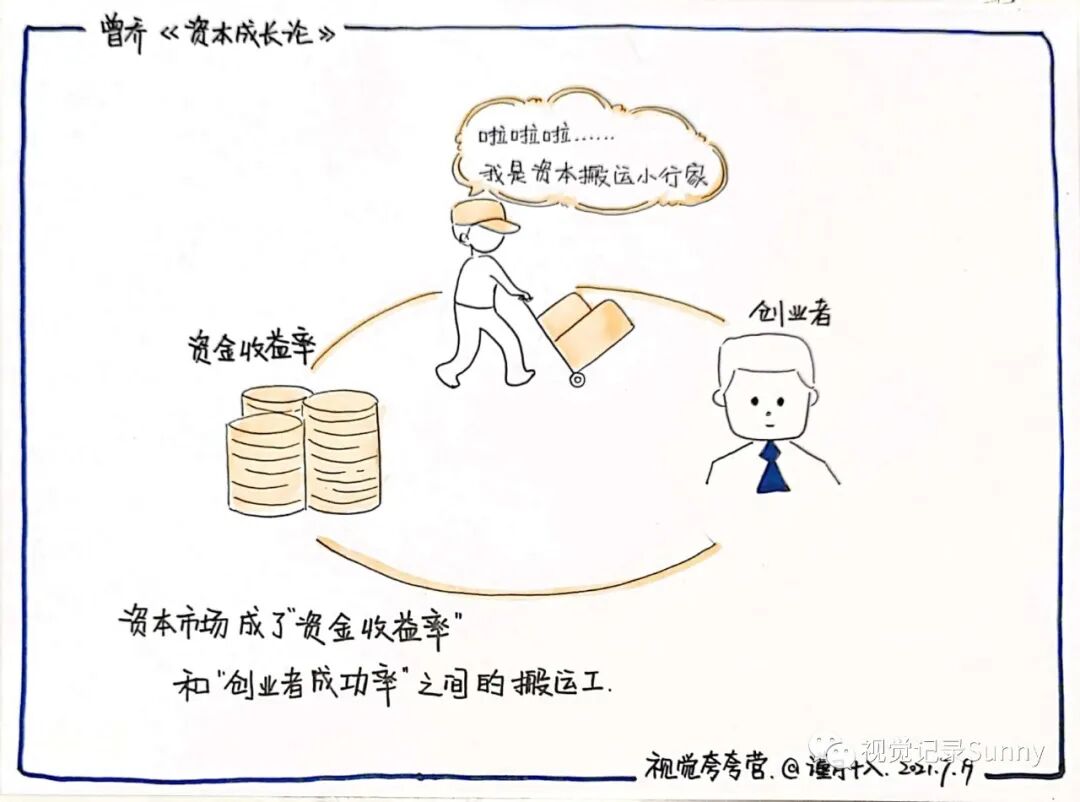 曾乔《资本成长论》
啦啦啦......
我是资本搬运小行家
资金收益率
创业者
资本市场成了"资金收益率"
和"创业者成功率"之间的搬运工.
视觉夸夸营.@
视觉记录Sunny